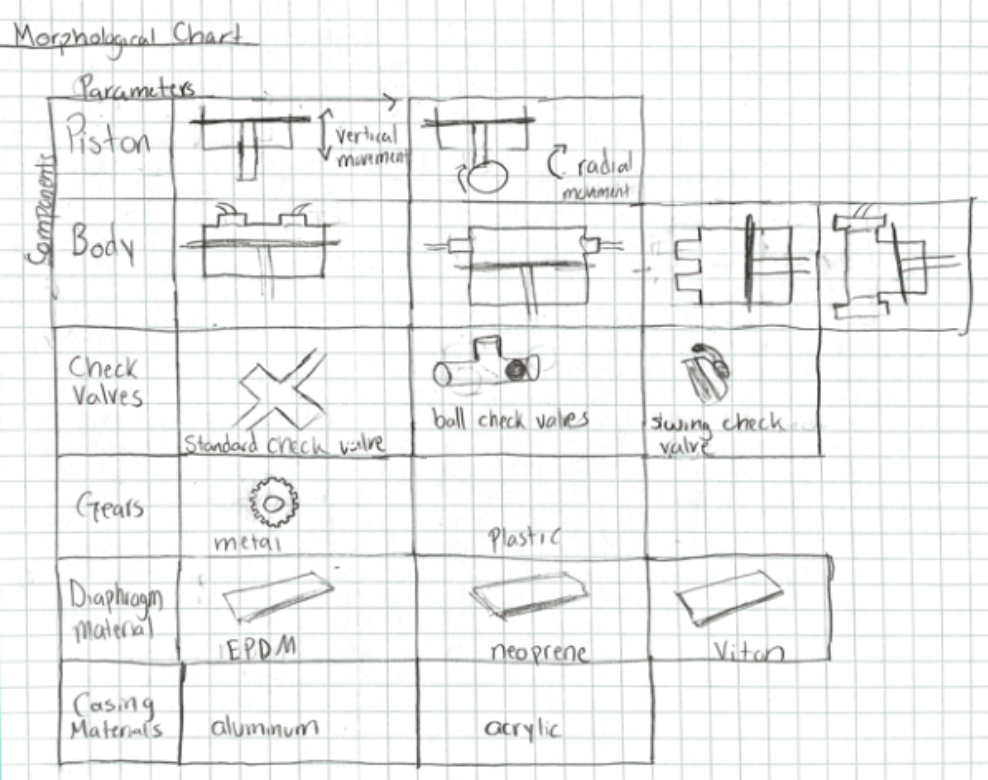 Morphological Chart
Parameters
Components
Piston
vertical
movement
radial
movement
Body
Check
Valves
Standard check valve
ball check valves
swing check
valve
Gears
metal
Plastic
Diaphragm
Material
EPDM
neoprene
Viton
Casing
Materials
aluminum
acrylic